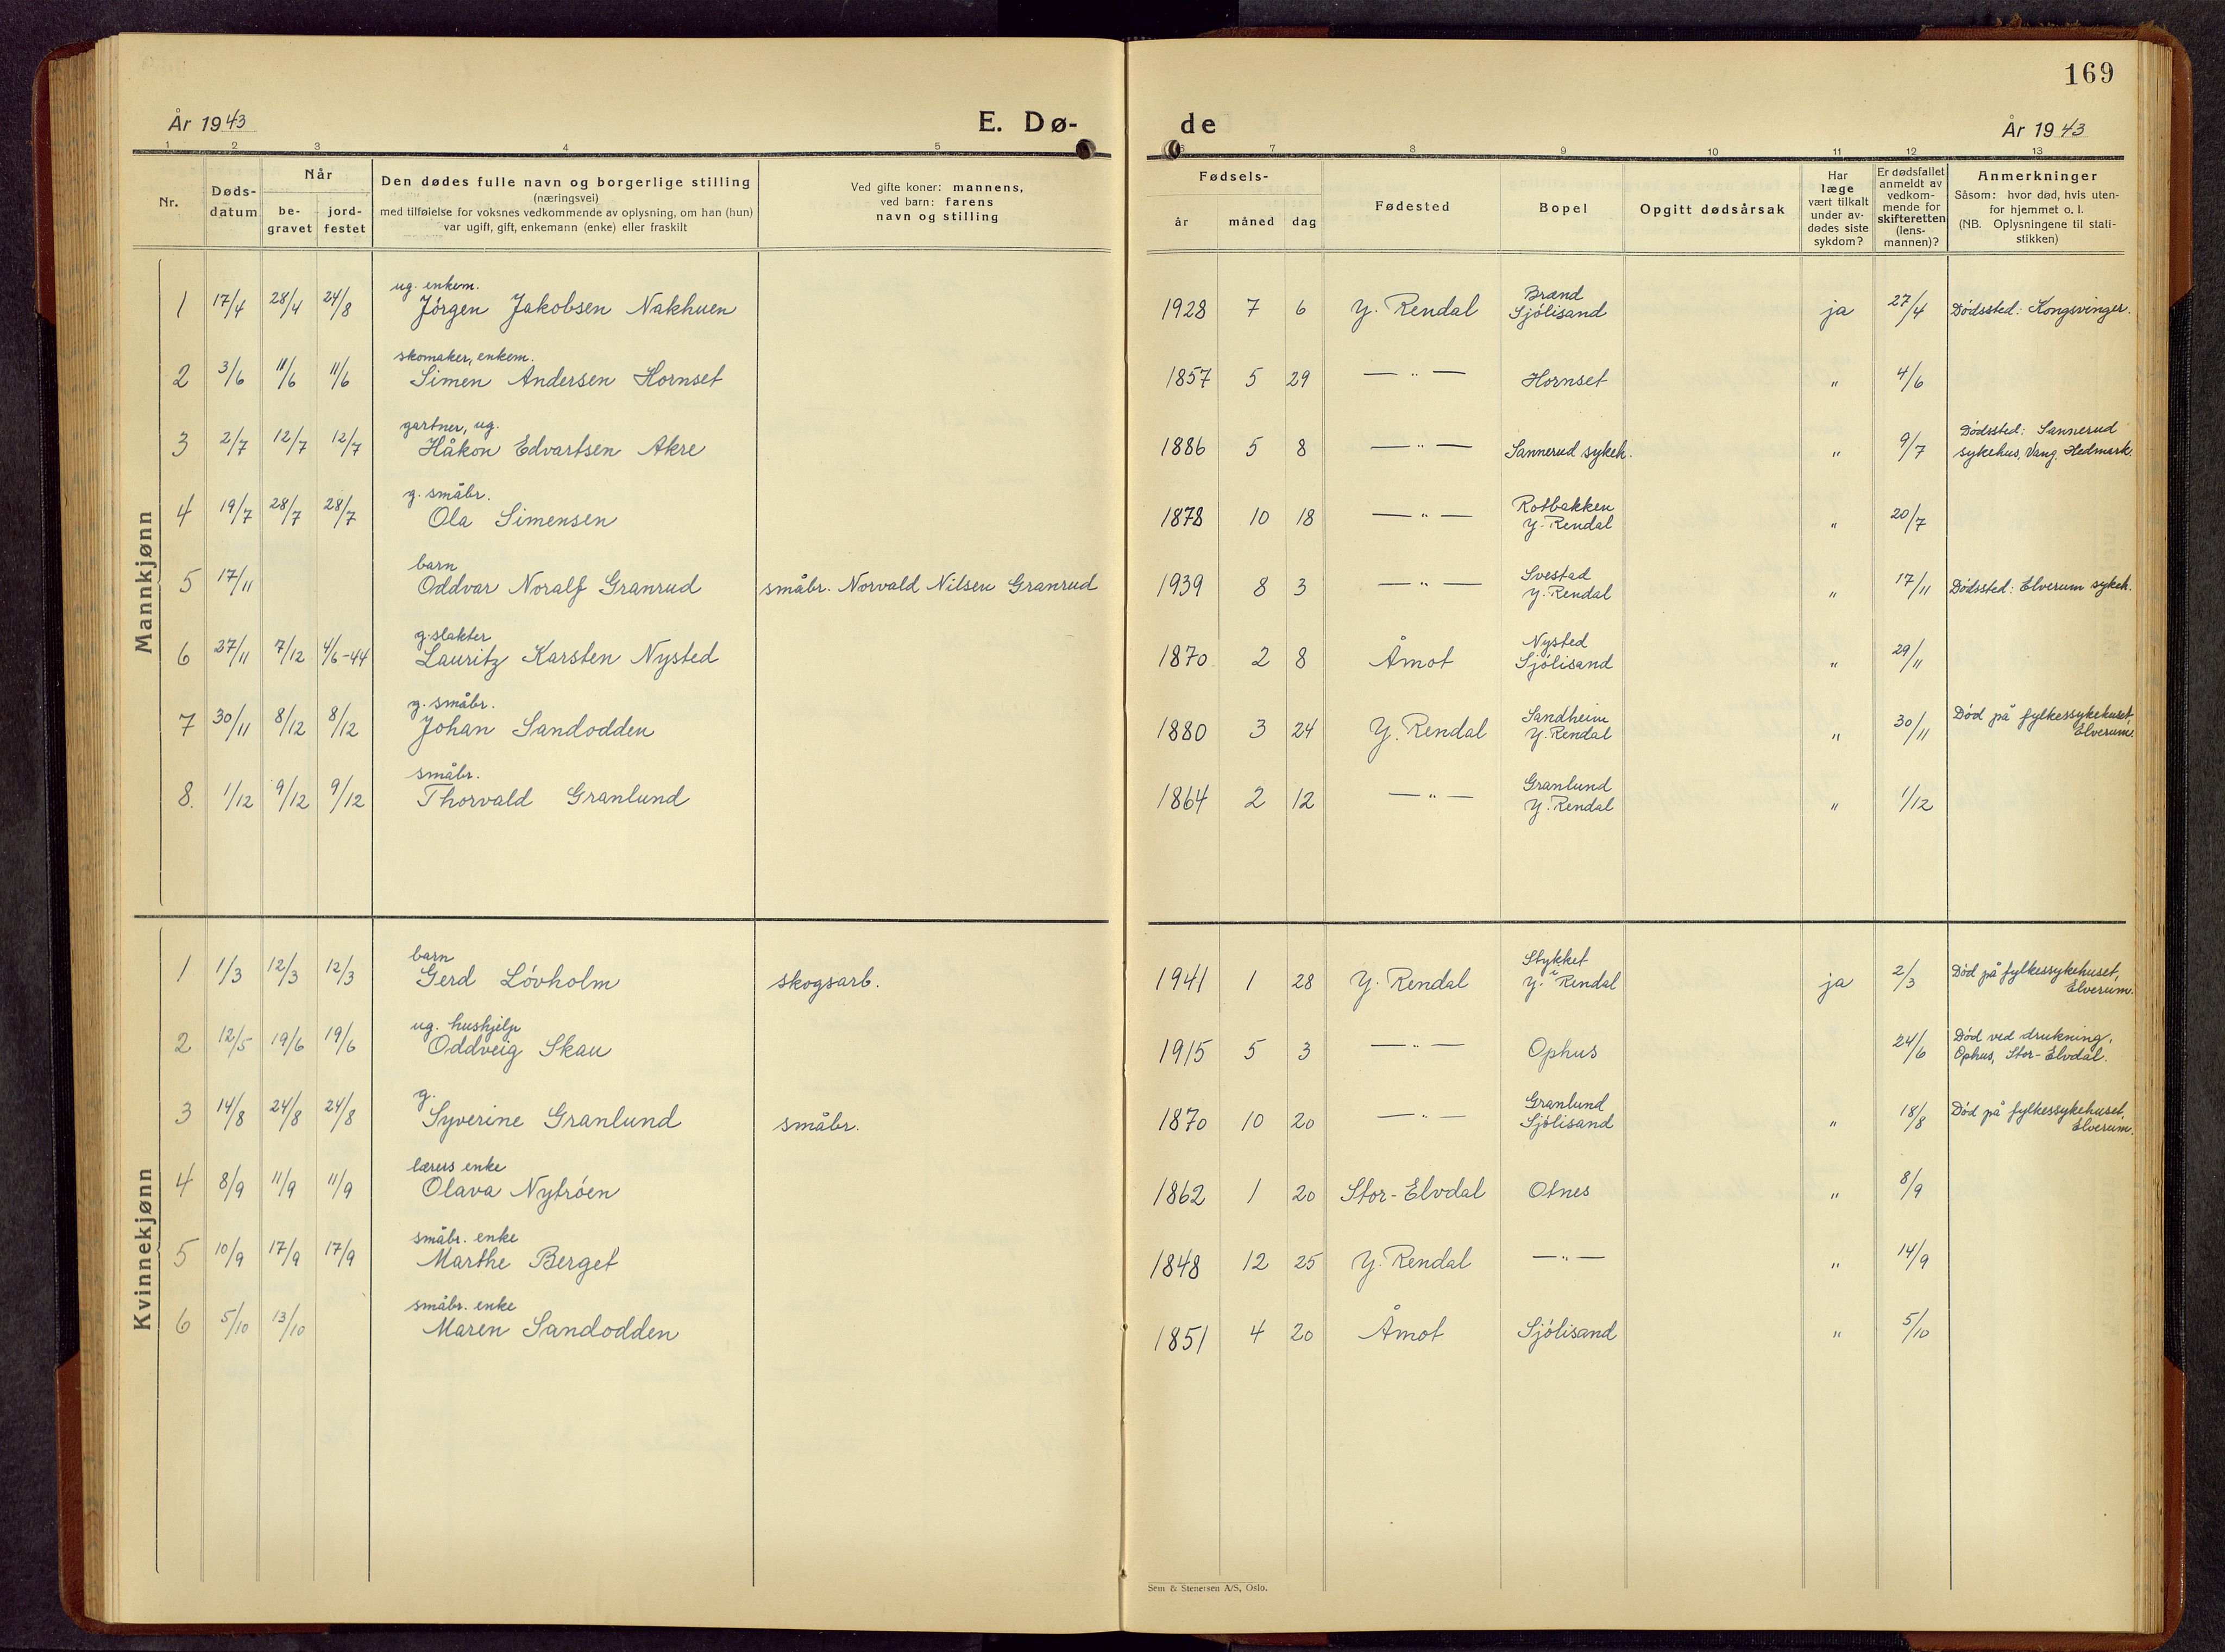 169
År 1943
E. Dø-
de
År 1943
1 2 3 4 5
6 7 8 9 10 11 12 13
Nr.
Døds-
datum
Når
be-
gravet
jord-
festet
Den dødes fulle navn og borgerlige stilling
(næringsvei)
med tilføielse for voksnes vedkommende av oplysning, om han (hun)
var ugift, gift, enkemann (enke) eller fraskilt
Ved gifte koner: mannens,
ved barn: farens
navn og stilling
Fødsels-
år måned dag
Fødested
Bopel
Opgitt dødsårsak
Har
læge
vært tilkalt
under av-
dødes siste
sykdom?
Er dødsfallet
anmeldt av
vedkom-
mende for
skifteretten
(lens-
mannen)?
Anmerkninger
Såsom: hvor død, hvis uten-
for hjemmet o. l.
(NB. Oplysningene til stati-
stikken)
Mannkjønn
ug. enkem. Brænd
1 17/4 28/4 24/8 Jörgen Jakobsen Nakhuen 1928 7 6 Y. Rendal Sjölisand ja 27/4 Dödssted: Kongsvinger.
skomaker, enkem.
2 3/6 11/6 11/6 Simen Andersen Hornset 1857 5 29 — " — Hornset " 4/6
gartner, ug. Dödssted: Sannerud
3 2/7 12/7 12/7 Håkon Edvartsen Akre 1886 5 8 — " — Sannerud sykeh. " 9/7 sykehus, Vang, Hedmark.
g. småbr. Rotbakken
4 19/7 28/7 28/7 Ola Simensen 1878 10 18 — " — Y. Rendal " 20/7
barn Svestad
5 17/11 Oddvar Noralf Granrud småbr. Norvald Nilsen Granrud 1939 8 3 — " — Y. Rendal " 17/11 Dödssted: Elverum sykeh.
g. slakter Nysted
6 27/11 7/12 4/6-44 Lauritz Karsten Nysted 1870 2 8 Åmot Sjölisand " 29/11
g. småbr. Sandheim Död på fylkessykehuset,
7 30/11 8/12 8/12 Johan Sandodden 1880 3 24 Y. Rendal Y. Rendal " 30/11 Elverum.
småbr. Granlund
8. 1/12 9/12 9/12 Thorvald Granlund 1864 2 12 — " — Y. Rendal " 1/12
Kvinnekjønn
barn Stykket Död på fylkessykehuset,
1 1/3 12/3 12/3 Gerd Lövholm skogsarb. 1941 1 28 Y. Rendal i Y. Rendal ja 2/3 Elverum.
ug. hushjelp Död ved drukning,
2 12/5 19/6 19/6 Oddveig Skau 1915 5 3 — " — Ophus 24/6 Ophus, Stor-Elvdal.
g. Granlund Död på fylkessykehuset,
3 14/8 24/8 24/8 Syverine Granlund småbr. 1870 10 20 — " — Sjölisand " 18/8 Elverum.
lærers enke
4 8/9 11/9 11/9 Olava Nytröen 1862 1 20 Stor-Elvdal Otnes " 8/9
småbr. enke
5 10/9 17/9 17/9 Marthe Berget 1848 12 25 Y. Rendal — " — " 14/9
småbr. enke
6 5/10 13/10 Maren Sandodden 1851 4 20 Åmot Sjölisand " 5/10
Sem & Stenersen A/S, Oslo.